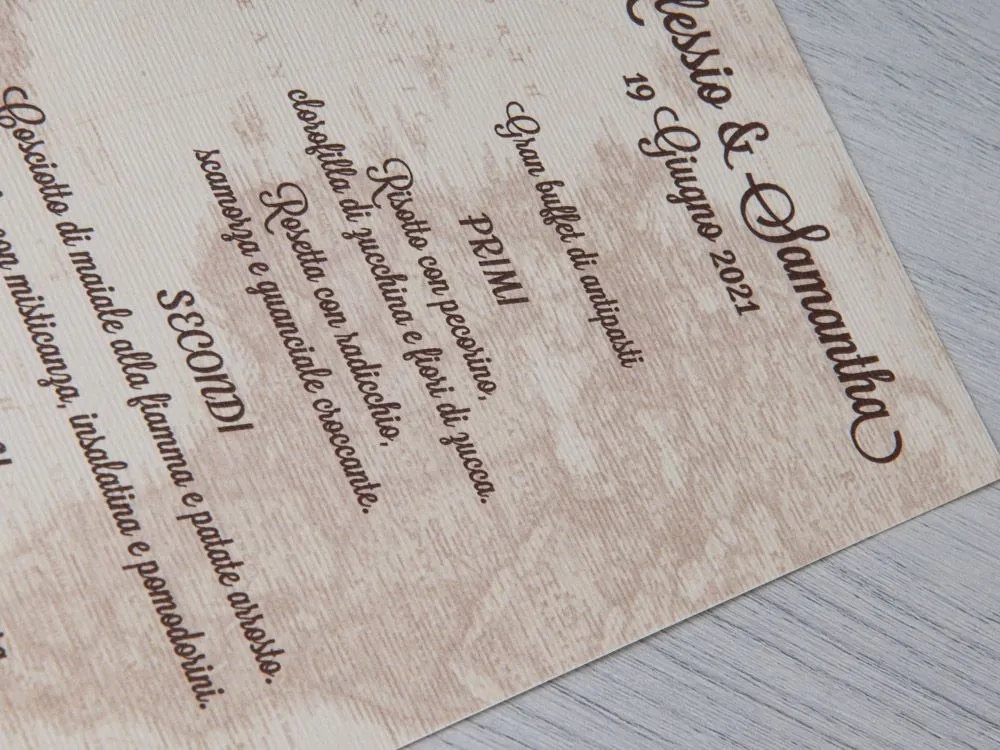 lessio & Samantha
19 Giugno 2021
Gran buffet di antipasti
PRIMI
Risotto con pecorino,
clorofilla di zucchina e fiori di zucca.
Rosetta con radicchio,
scamorza e guanciale croccante.
SECONDI
Cosciotto di maiale alla fiamma e patate arrosto.
con misticanza, insalatina e pomodorini.